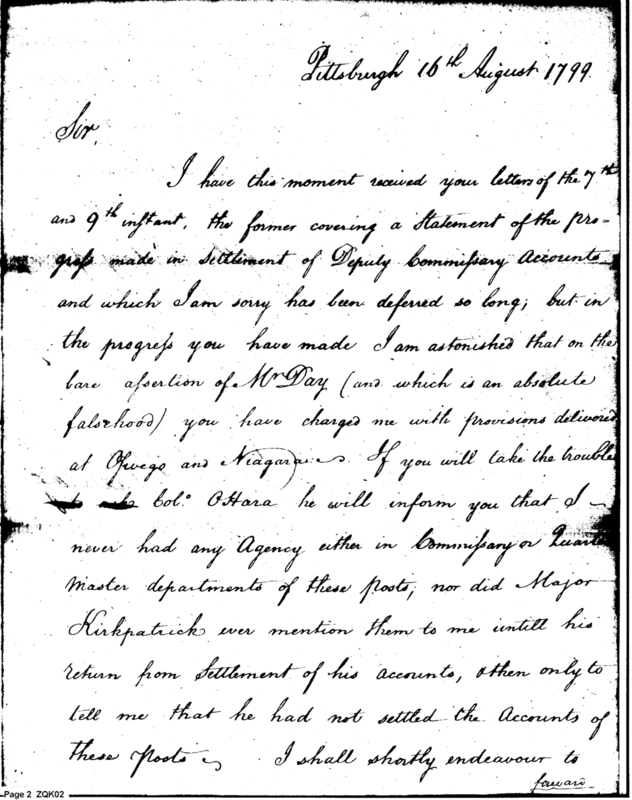 Pittsburgh 16th August 1799.
Sir,
I have this moment received your letters of the 7th
and 9th instant, the former covering a Statement of the pro-
gress made in Settlement of Deputy Commissary Accounts
and which I am sorry has been deferred so long; but in
the progress you have made I am astonished that on the
bare assertion of Mr Day (and which is an absolute
falsehood) you have charged me with provisions delivered
at Oswego and Niagara. If you will take the trouble
Colo. OHara he will inform you that I
never had any Agency either in Commissary or Quarter
Master departments of these posts; nor did Major
Kirkpatrick ever mention them to me untill his
return from Settlement of his accounts, & then only to
tell me that he had not settled the Accounts of
these Posts. I shall shortly endeavour to
forward
Page 2 ZQK02